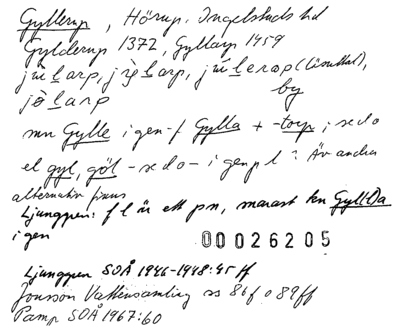 Gyllerup, Hörup. Ingelstads hd
Gylderup 1372, Gyllarp 1459
by
mn Gylle i gen. f Gylla + -torp; se do
el gyl, göl - se do - i gen pl? Är andra
alternativ finns
Ljunggren: fl är ett pn, marast kn Gyl(l)a
i gen
00026205
Ljunggren SOÅ 1946-1948:45 ff
Jonsson Vattensamling ss 86 f o 89 ff
Pamp SOÅ 1967:60